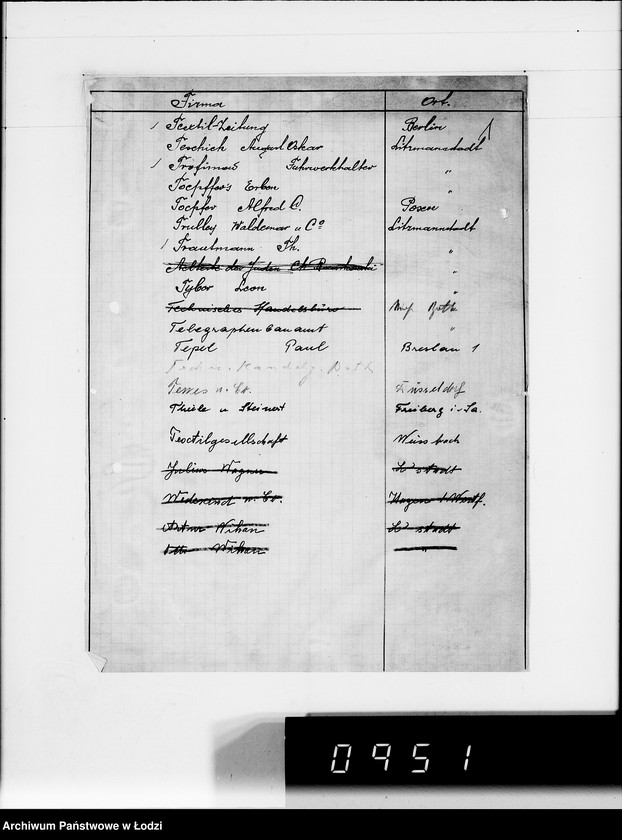 Firma Ort.
1 Textil-Zeitung Berlin
Terchich August Oskar Litzmannstadt
1 Trofimow Fuhrwerkhalter "
Toepffer's Erben "
Toepfer Alfred C. Posen
Trulley Waldemar u Co Litzmannstadt
1 Trautmann Th. "
Aelteste der Juden Ch Rumkowski "
Tybor Leon "
Technisches Handelsbüro Roth
Telegraphenbauamt "
Tepel Paul Breslau 1
Techn. Handelg. Roth
Tewes u. Co. Düsseldorf
Thiele u Steinert Freiberg i. Sa.
Textilgesellschaft Weissbach
Julius Wagner L stadt
u. Co. Hagen i Westf.
Artur Wihan L stadt
Otto Wihan "
0951
Archiwum Państwowe w Łodzi